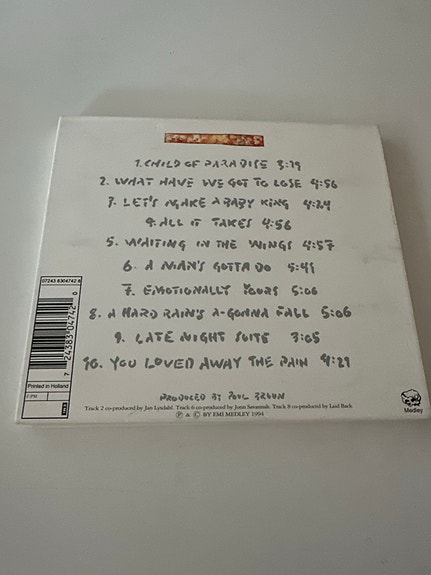 1. CHILD OF PARADISE 3:29
2. WHAT HAVE WE GOT TO LOSE 4:56
3. LET'S MAKE A BABY KING 4:24
4. ALL IT TAKES 4:56
5. WAITING IN THE WINGS 4:57
6. A MAN'S GOTTA DO 5:41
7. EMOTIONALLY YOURS 5:06
8. A HARD RAIN'S A-GONNA FALL 5:06
9. LATE NIGHT SUITE 3:05
10. YOU LOVED AWAY THE PAIN 4:29
PRODUCED BY POUL BRUUN
Track 2 co-produced by Jan Lysdahl. Track 6 co-produced by Jonn Savannah. Track 8 co-produced by Laid Back
℗ & © BY EMI MEDLEY 1994
07243 8304742 8
7 24383 04742 0
Printed in Holland
Medley